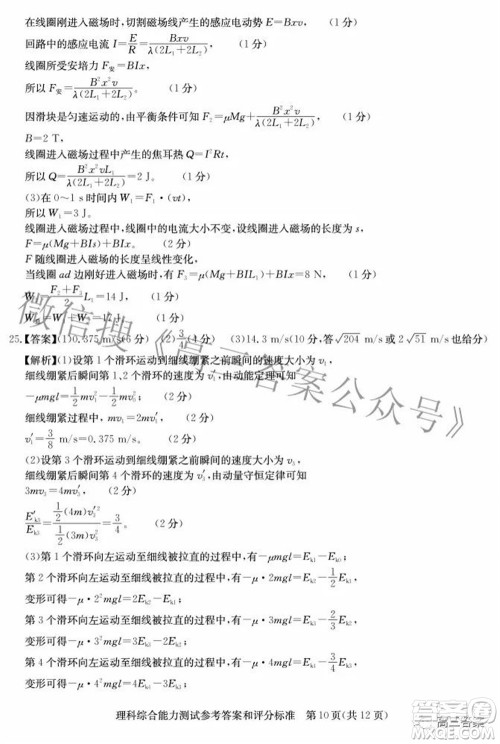 在线圈刚进入磁场时,切割磁场线产生的感应电动势 E=Bxv, (1分)
回路中的感应电流 I=E/R=Bxv/λ(2L₁+2L₂), (1分)
线圈所受安培力 F安=BIx,
所以 F安=B²x²v/λ(2L₁+2L₂), (1分)
因滑块是匀速运动的,由平衡条件可知 F₂=μMg+B²x²v/λ(2L₁+2L₂), (1分)
B=2 T,
线圈进入磁场过程中产生的焦耳热 Q=I²Rt,
所以 Q=B²x²vL₁/λ(2L₁+2L₂)=2 J。 (1分)
(3)在 0~1 s 时间内 W₁=F₁·(vt),
所以 W₁=3 J。 (1分)
线圈进入磁场过程中,线圈中的电流大小不变,设线圈进入磁场的长度为 s,
F=μ(Mg+BIs)+BIx。 (2分)
F 随线圈进入磁场的长度呈线性变化,
当线圈 ad 边刚好进入磁场时,有 F₃=μ(Mg+BIL₁)+BIx=8 N, (1分)
W₂=(F₂+F₃)/2 L₁=14 J, (1分)
W=W₁+W₂=17 J。 (1分)
25.【答案】(1)0.375 m/s(6分) (2)3/4(4分) (3)14.3 m/s(10分,答√204 m/s 或 2√51 m/s 也给分)
【解析】(1)设第 1 个滑环运动到细线绷紧之前瞬间的速度大小为 v₁,
细线绷紧后瞬间第 1、2 个滑环的速度为 v₁′,由动能定理可知
−μmgl=1/2mv₁²−1/2mv², (2分)
细线绷紧过程中,mv₁=2mv₁′, (2分)
v₁′=3/8 m/s=0.375 m/s。 (2分)
(2)设第 3 个滑环运动到细线绷紧之前瞬间的速度大小为 v₃,
细线绷紧后瞬间第 4 个滑环的速度为 v₃′,由动量守恒定律可知
3mv₃=4mv₃′, (2分)
Eₖ₃′/Eₖ₃=1/2(4m)v₃′²/1/2(3m)v₃²=3/4。 (2分)
(3)第 1 个滑环向左运动至细线被拉直的过程中,有−μmgl=Eₖ₁−Eₖ₀;
第 2 个滑环向左运动至细线被拉直的过程中,有−μ·2mgl=Eₖ₂−1/2Eₖ₁,
变形可得−μ·2²mgl=2Eₖ₂−Eₖ₁;
第 3 个滑环向左运动至细线被拉直的过程中,有−μ·3mgl=Eₖ₃−2/3Eₖ₂,
变形可得−μ·3²mgl=3Eₖ₃−2Eₖ₂;
第 4 个滑环向左运动至细线被拉直的过程中,有−μ·4mgl=Eₖ₄−3/4Eₖ₃,
变形可得−μ·4²mgl=4Eₖ₄−3Eₖ₃;
理科综合能力测试参考答案和评分标准 第10页(共12页)
微信搜《高三答案公众号》
高三答案